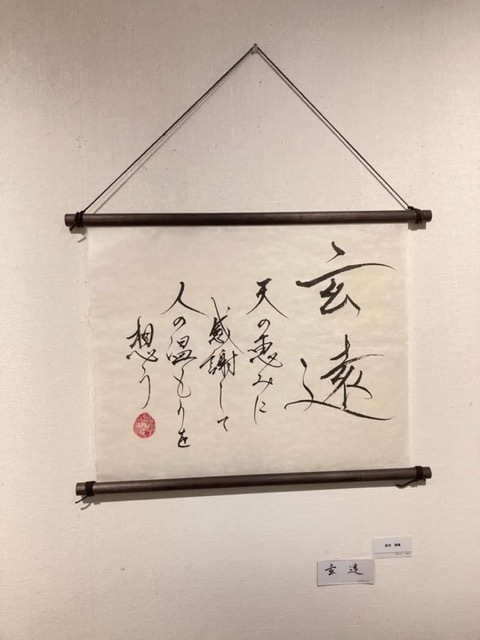 玄遠
天の恵みに
感謝して
人の温もりを
想う
玄遠